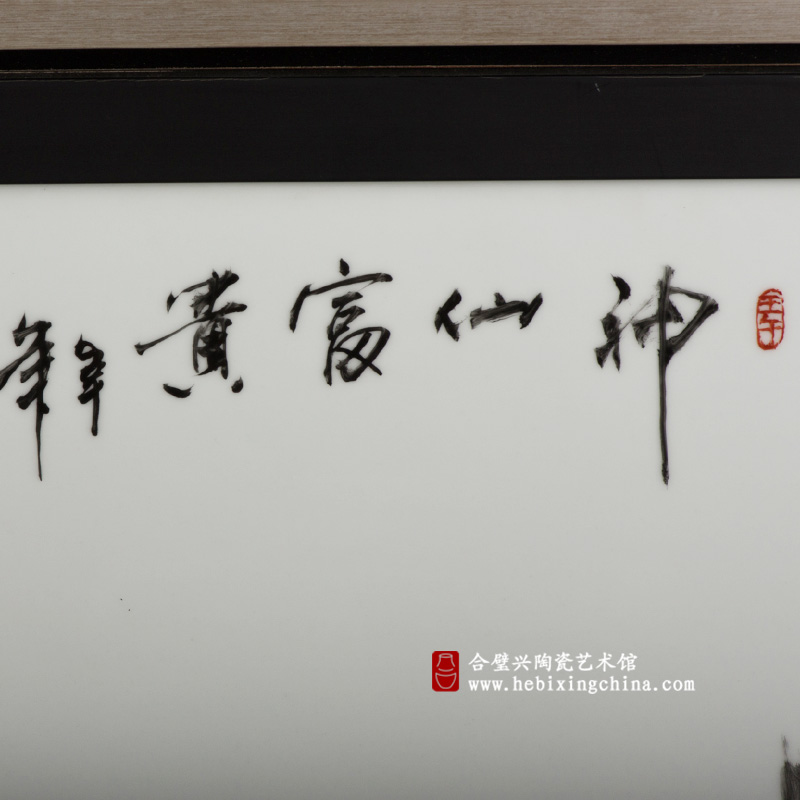 神仙富貴
合璧兴陶瓷艺术馆
www.hebixingchina.com